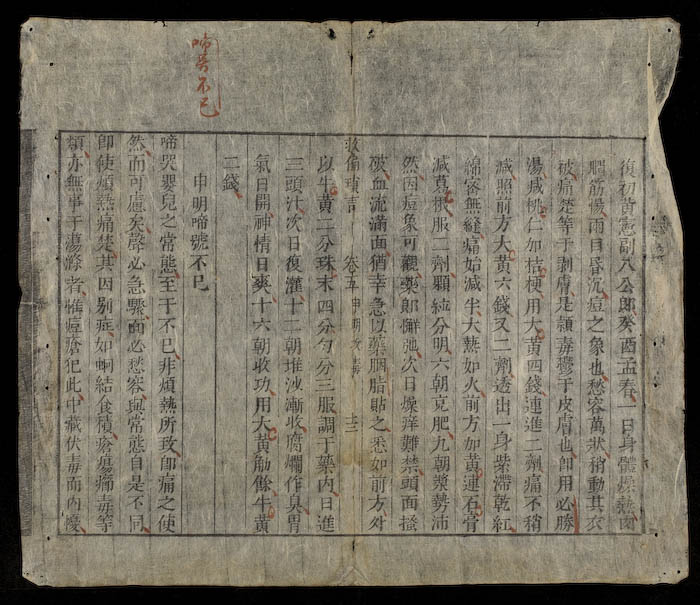 啼哭不已
復初黃憲副八公郎癸酉孟春一日身體燥熱肉
瞤筋惕兩目昏沉痘之象也愁容萬狀稍動其衣
被痛楚等于剥膚是頴毒鬱于皮膚也卽用必勝
湯减桃仁加桔梗用大黃四錢連進二劑痛不稍
减照前方大黃六錢又二劑透出一身紫滯乾紅
綿密無縫痛始减半大熱如火前方加黃連石膏
减葛根服二劑顆粒分明六朝克肥九朝漿勢沛
然因痘象可觀藥郎懈弛次日燥痒難禁頭面搔
破血流滿面猶幸急以藥胭脂貼之悉如前方外
救偏瑣言 卷五 申明救毒 十二
以牛黃二分珠末四分匀分三服調于藥内日進
三頭汁次日復灌十二朝堆沙漸收腐爛作臭胃
氣日開神情日爽十六朝收功用大黃觔餘牛黃
二錢
申明啼號不已
啼哭嬰兒之常態至于不已非煩熱所致卽痛之使
然而可慮矣聲必急驟面必愁容與常態自是不同
卽使煩熱痛楚其因别症如蛔結食積瘡瘍痛毒等
煩亦無事于蕩滌者惟痘瘡犯此中藏伏毒而内擾